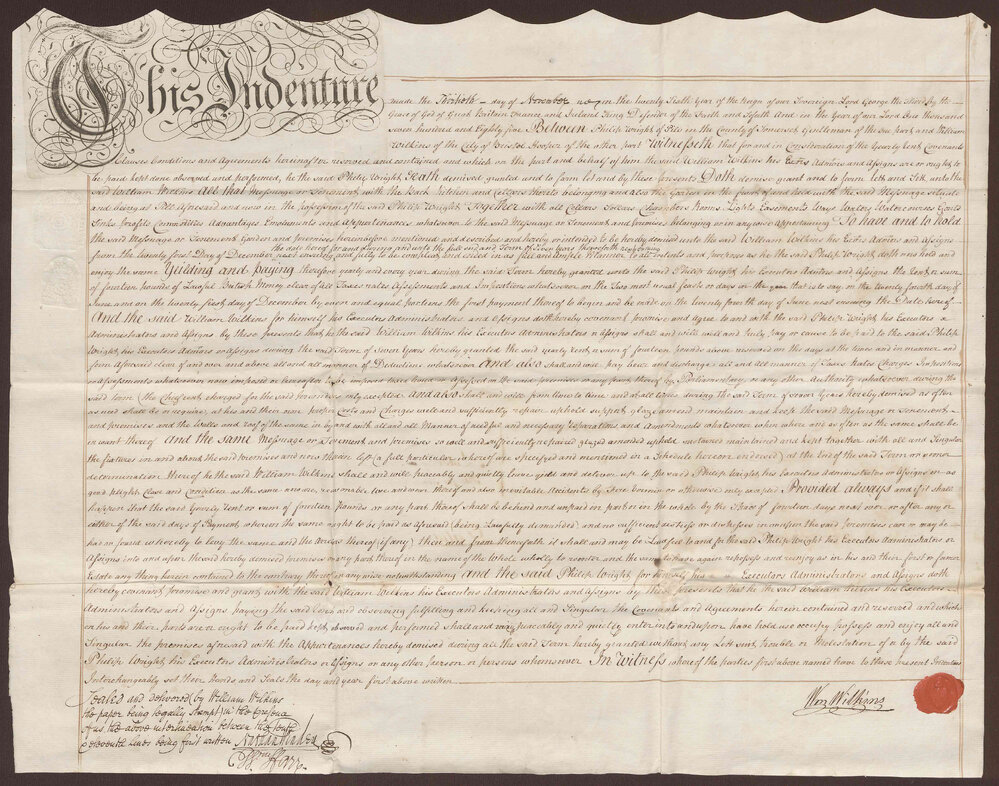 This Indenture
made the Thirtieth day of November in the twenty Sixth Year of the Reign of our Sovereign Lord George the third by the
Grace of God of Great Britain France and Ireland King Defender of the Faith And in the Year of our Lord One thousand
seven hundred and Eighty five Between Philip Wright of Pill in the County of Somerset Gentleman of the one part and William
Wilkins of the City of Bristol Hooper of the other part Witnesseth that for and in Consideration of the Yearly Rent Covenants
Clauses Conditions and Agreements hereinafter reserved and contained and which on the part and behalf of him the said William Wilkins his Exōrs Admōrs and Assigns are or ought to
be paid kept done observed and performed, he the said Philip Wright Hath demised granted and to farm let and by these presents Doth demise grant and to farm let and Sett unto the
said William Wilkins All that Messuage or Tenement with the Back Kitchen and Cellars thereto belonging and also the Garden in the front of and held with the said Messuage situate
and being at Pill aforesaid and now in the possession of the said Philip Wright Together with all Cellars Sollars Chambers Rooms Lights Easements Ways Water Watercourses
Sinks Profits Commodities Advantages Emoluments and Appurtenances whatsoever to the said Messuage or Tenement and premises belonging or in any wise appertaining To have and to hold
the said Messuage or Tenement Garden and premises hereinbefore mentioned and described and hereby or intended to be hereby demised unto the said William Wilkins his Exōrs Admōrs and Assigns
the date hereof for and during and unto the full end and Term of Seven Years thence next ensuing
from the twenty first Day of December next and fully to be compleat and ended in as full and ample Manner to all intents and purposes as he the said Philip Wright now held and
enjoy the same Yielding and paying therefore yearly and every year during the said Term hereby granted unto the said Philip Wright his Executors Admōrs and Assigns the Rent or sum
of fourteen pounds of Lawful British Money clear of all Taxes rates Assessments and Impositions whatsoever on the Two most usual feasts or days in the year that is to say on the twenty fourth day of
June and on the twenty first day of December by even and equal portions the first payment thereof to begin and be made on the twenty fourth day of June next ensuing the Date hereof
And the said William Wilkins for himself his Executors Administrators and Assigns doth hereby covenant promise and agree to and with the said Philip Wright his Executors
Administrators and Assigns by these presents that he the said William Wilkins his Executors Administrators or Assigns shall and will well and truly pay or cause to be paid to the said Philip
Wright his Executors Admōrs or Assigns during the said Term of Seven Years hereby granted the said yearly rent or sum of fourteen pounds above reserved on the days at the times and in manner and
form aforesaid clear of and over and above all and all manner of Deductions whatsoever And also shall and will pay bear and discharge all and all manner of Taxes Rates Charges Impositions
or Assessments whatsoever now imposed or hereafter to be imposed taxed or assessed on the said premises or any part thereof by Parliamentary or any other Authority whatsoever during the
said Term (the Chief rent charged for the said premises only excepted) And also shall and will from time to time and at all times during the said Term of seven Years hereby demised as often
as need shall be or require, at his and their own proper Costs and Charges well and sufficiently repair uphold support glaze amend maintain and keep the said Messuage or Tenement
and premises and the Walls and roof of the same in by and with all and all Manner of needful and necessary reparations and amendments whatsoever when where and as often as the same shall be
in want thereof And the same Messuage or Tenement and premises so well and sufficiently repaired glazed amended upheld sustained maintained and kept together with all and Singular
the fixtures in and about the said premises and now therein left (a full particular whereof are specified and mentioned in a Schedule hereon endorsed) at the End of the said Term or sooner
determination thereof he the said William Wilkins shall and will peaceably and quietly leave yield and deliver up to the said Philip Wright his Executors Administrators or Assigns in as
good plight Case and Condition as the same now are, reasonable use and wear thereof and also inevitable Accidents by Fire or otherwise only excepted Provided always and if it shall
happen that the said Yearly Rent or sum of fourteen Pounds or any part thereof shall be behind and unpaid in part or in the whole by the Space of fourteen days next over or after any or
either of the said days of Payment whereon the same ought to be paid as aforesaid (being Lawfully demanded) and no sufficient distress or distresses in or upon the said premises can or may be
had or found whereby to levy the same and the Arrears thereof (if any) then and from thenceforth it shall and may be Lawful to and for the said Philip Wright his Executors Administrators or
Assigns into and upon the said hereby demised premises or any part thereof in the name of the whole wholly to reenter and the same to have again repossess and reenjoy as in his and their first or former
Estate any thing herein contained to the contrary thereof in any wise notwithstanding And the said Philip Wright for himself his Executors Administrators and Assigns doth
hereby covenant promise and grant with the said William Wilkins his Executors Administrators and Assigns by these presents that he the said William Wilkins his Executors
Administrators and Assigns paying the said Rent and observing fulfilling and keeping all and Singular the Covenants and Agreements herein contained and reserved and which
on his and their parts are or ought to be paid kept observed and performed shall and may peaceably and quietly enter into and upon have hold use occupy possess and enjoy all and
Singular the premises aforesaid with the Appurtenances hereby demised during all the said Term hereby granted without any Lett suit trouble or Molestation of or by the said
Philip Wright his Executors Administrators or Assigns or any other person or persons whomsoever In Witness whereof the parties first above named have to these present Indentures
Interchangeably set their Hands and Seals the day and year first above written
Sealed and delivered (by William Wilkins
the paper being legally Stampt) in the Presence
of us the above interlineation between the tenth
& eleventh Lines being first written
Wm Wilkins